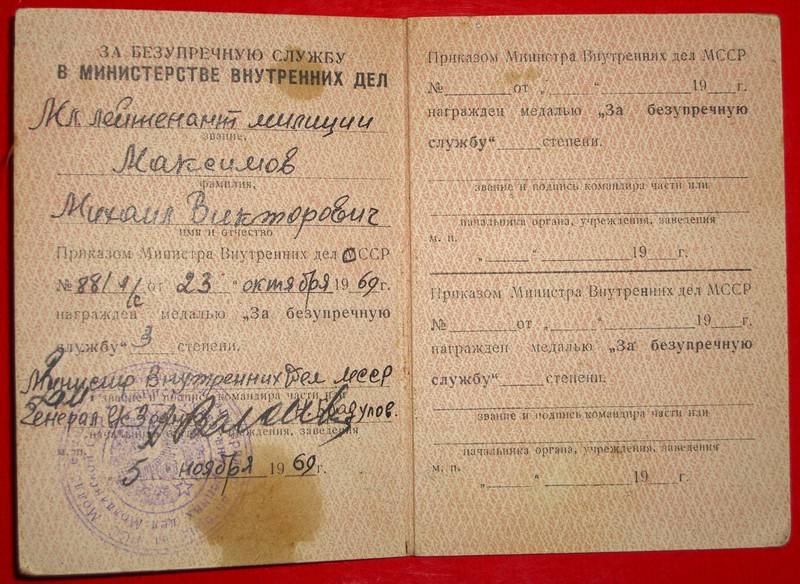 ЗА БЕЗУПРЕЧНУЮ СЛУЖБУ
В МИНИСТЕРСТВЕ ВНУТРЕННИХ ДЕЛ
Мл. лейтенант милиции
звание,
Максимов
фамилия,
Михаил Викторович
имя и отчество
Приказом Министра Внутренних дел МССР
№ 88 л/с от „23“ октября 1969г.
награжден медалью „За безупречную
службу“ 3 степени.
Министр Внутренних Дел МССР
звание и подпись командира части или
Генерал
начальника органа, учреждения, заведения
м. п.
„5“ ноября 1969г.
Приказом Министра Внутренних дел МССР
№ от „ “ 19 г.
награжден медалью „За безупречную
службу“ степени.
звание и подпись командира части или
начальника органа, учреждения, заведения
м. п.
„ “ 19 г.
Приказом Министра Внутренних дел МССР
№ от „ “ 19 г.
награжден медалью „За безупречную
службу“ степени.
звание и подпись командира части или
начальника органа, учреждения, заведения
м. п.
„ “ 19 г.